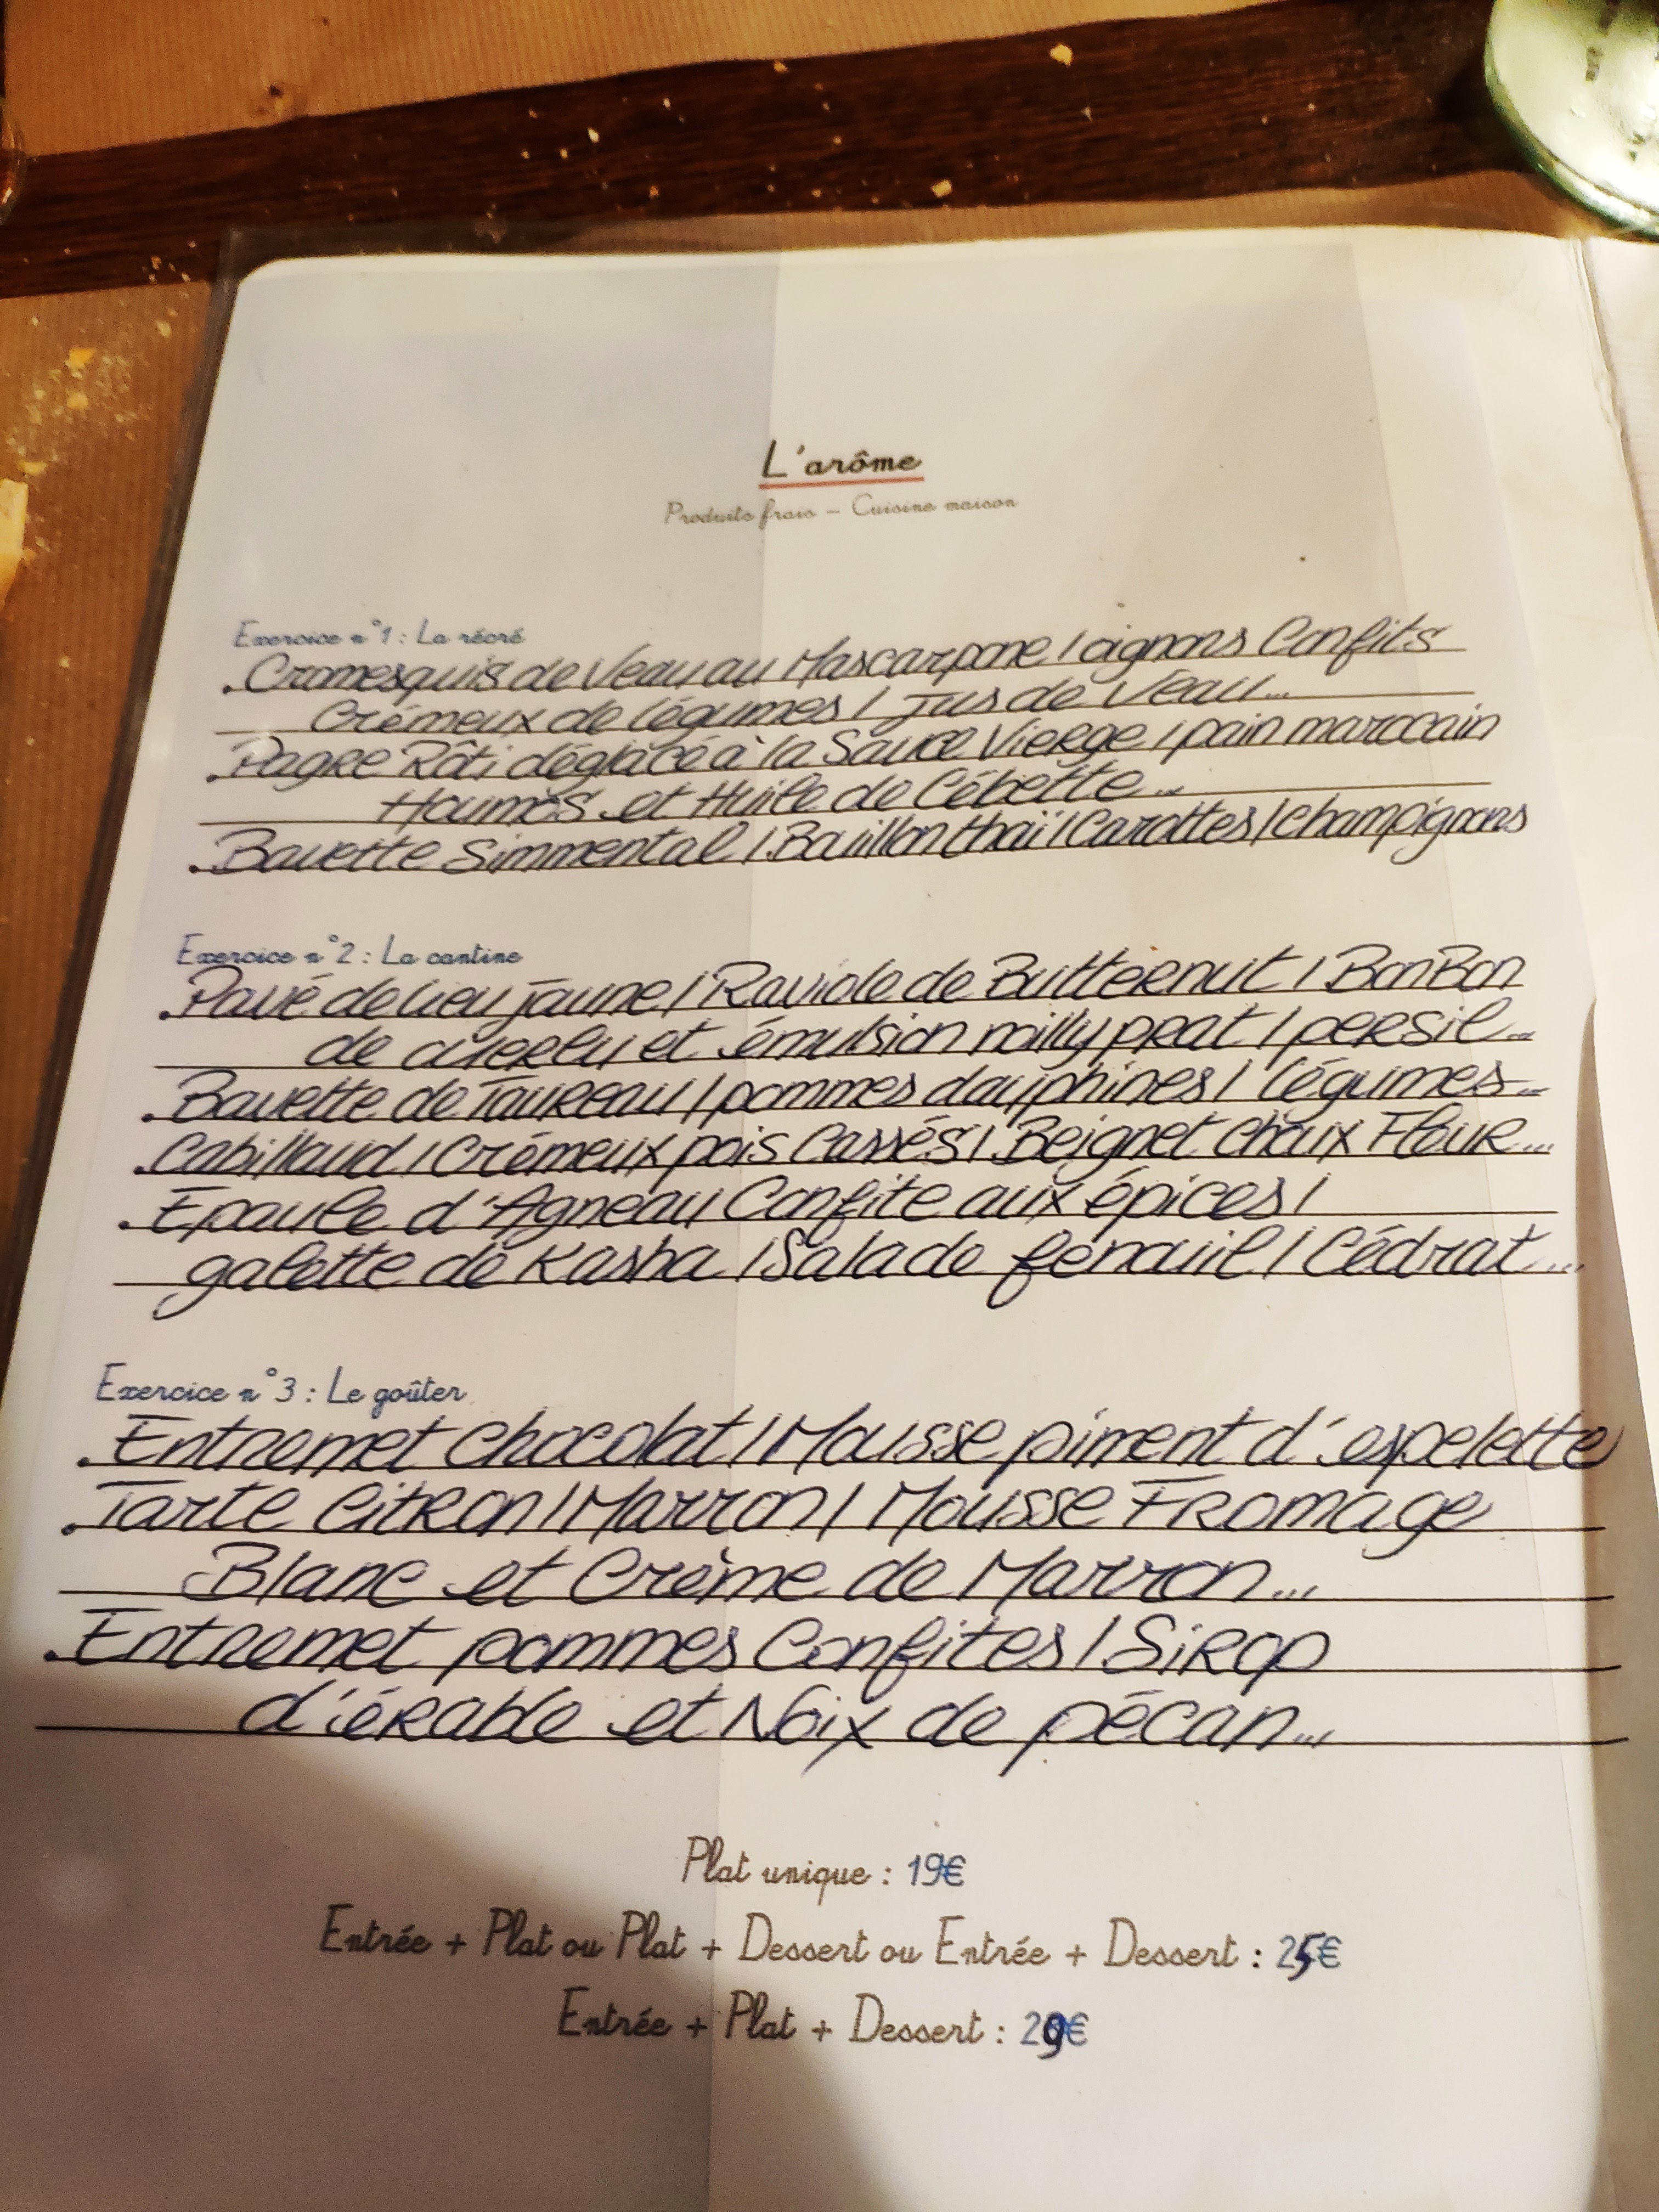 L'arôme
Produits frais – Cuisine maison
Exercice n°1 : La récré
. Cromesquis de Veau au Mascarpone / oignons Confits
Crémeux de légumes / jus de Veau...
. Pagre Rôti déglacé à la Sauce Vierge / pain maroccain
Houmos et Huile de Cébette...
. Bavette Simmental / Bouillon thaï / Carottes / champignons
Exercice n°2 : La cantine
. Pavé de lieu jaune / Raviole de Butternut / BonBon
de et émulsion noilly prat / persil...
. Bavette de Taureau / pommes dauphines / légumes...
. Cabillaud / Crémeux pois Cassés / Beignet choux Fleur...
. Epaule d'Agneau Confite aux épices /
galette de Kasha / Salade fenouil / Cédrat...
Exercice n°3 : Le goûter
. Entremet chocolat / Mousse piment d'espelette
. Tarte Citron / Marron / Mousse Fromage
Blanc et Crème de Marron...
. Entremet pommes Confites / Sirop
d'érable et Noix de pécan...
Plat unique : 19€
Entrée + Plat ou Plat + Dessert ou Entrée + Dessert : 25€
Entrée + Plat + Dessert : 29€